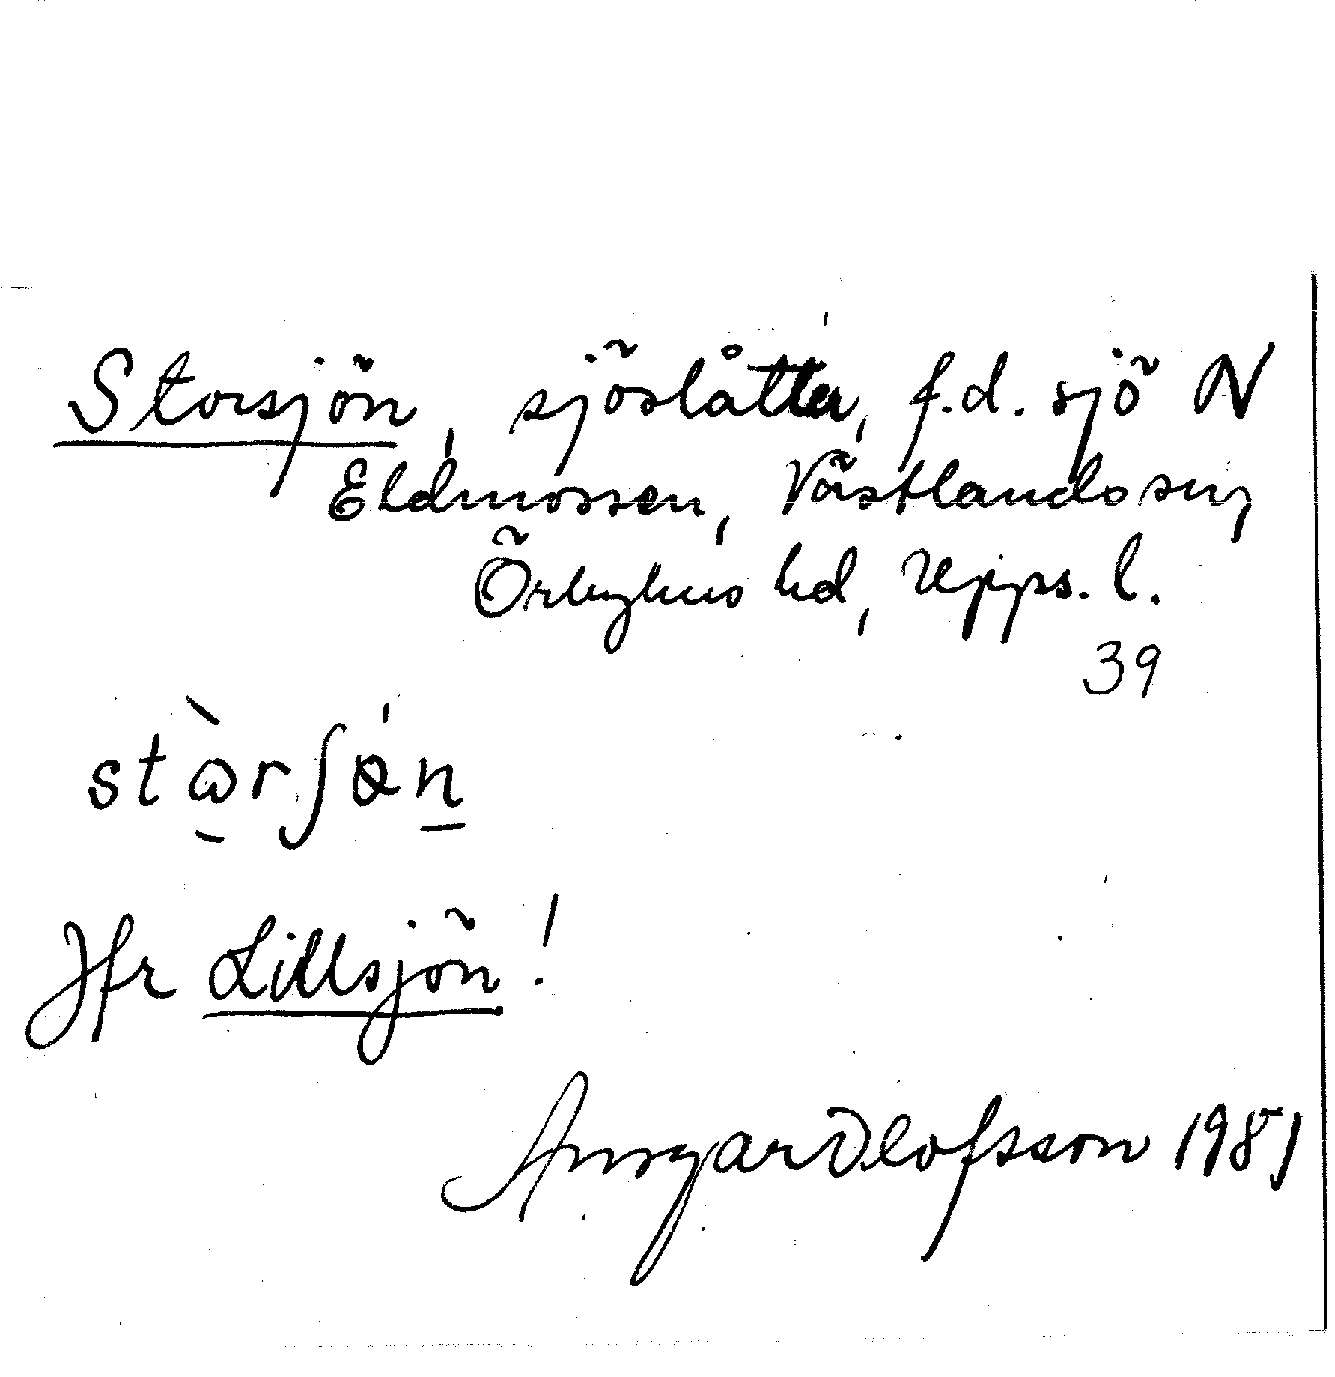 Storsjön, sjöslåtter, f.d. sjö N
Eldmossen, Västlands sn,
Örbyhus hd, Upps. l.
39
Jfr Lillsjön!
Ansgar Olofsson 1981